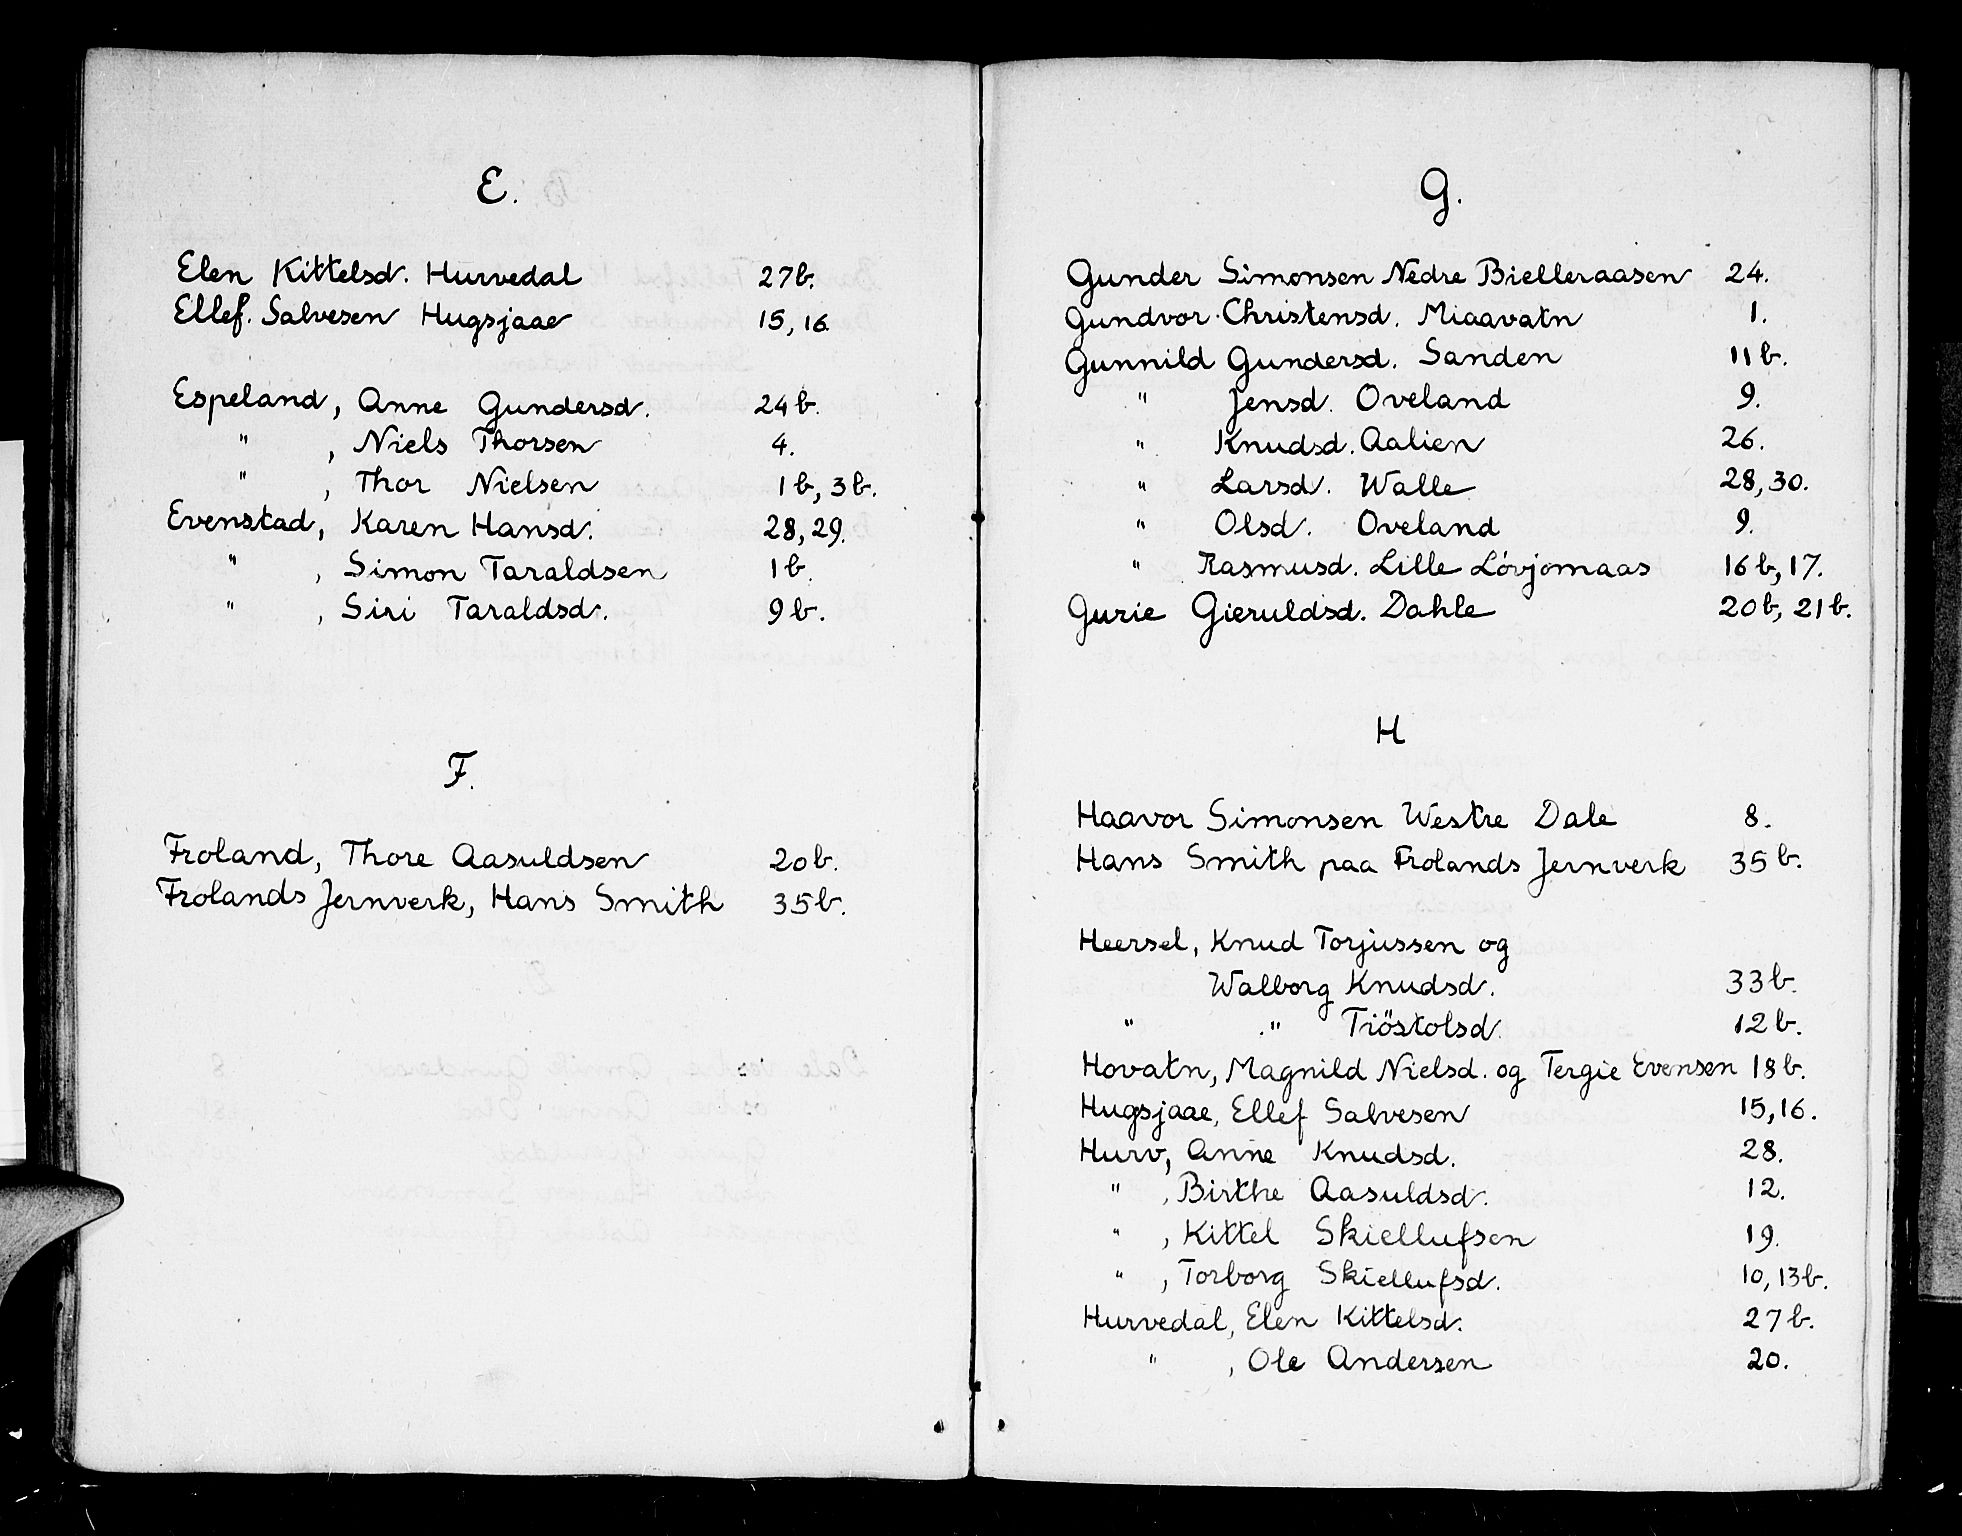 E.
Elen Kittelsd. Hurvedal 27b.
Ellef. Salvesen Hugsjaae 15, 16
Espeland, Anne Gundersd. 24b.
" , Niels Thorsen 4.
" , Thor Nielsen 1b, 3b.
Evenstad, Karen Hansd. 28, 29.
" , Simon Taraldsen 1b.
" , Siri Taraldsd. 9b.
F.
Froland, Thore Aasuldsen 20b.
Frolands Jernverk, Hans Smith 35b.
G.
Gunder Simonsen Nedre Bielleraasen 24.
Gundvor Christensd. Miaavatn 1.
Gunnild Gundersd. Sanden 11b.
" Jensd. Oveland 9.
" Knudsd. Aalien 26.
" Larsd. Walle 28, 30.
" Olsd. Oveland 9.
" Rasmusd. Lille Løvjomaas 16b, 17.
Gurie Gieruldsd. Dahle 20b, 21b.
H
Haavor Simonsen Westre Dale 8.
Hans Smith paa Frolands Jernverk 35b.
Heersel, Knud Torjussen og
Walborg Knudsd. 33b.
" " Tiöstolsd. 12b.
Hovatn, Magnild Nielsd. og Tergie Evensen 18b.
Hugsjaae, Ellef Salvesen 15, 16.
Hurv, Anne Knudsd. 28.
" , Birthe Aasuldsd. 12.
" , Kittel Skiellufsen 19.
" , Torborg Skiellufsd. 10, 13b.
Hurvedal, Elen Kittelsd. 27b.
" , Ole Andersen 20.